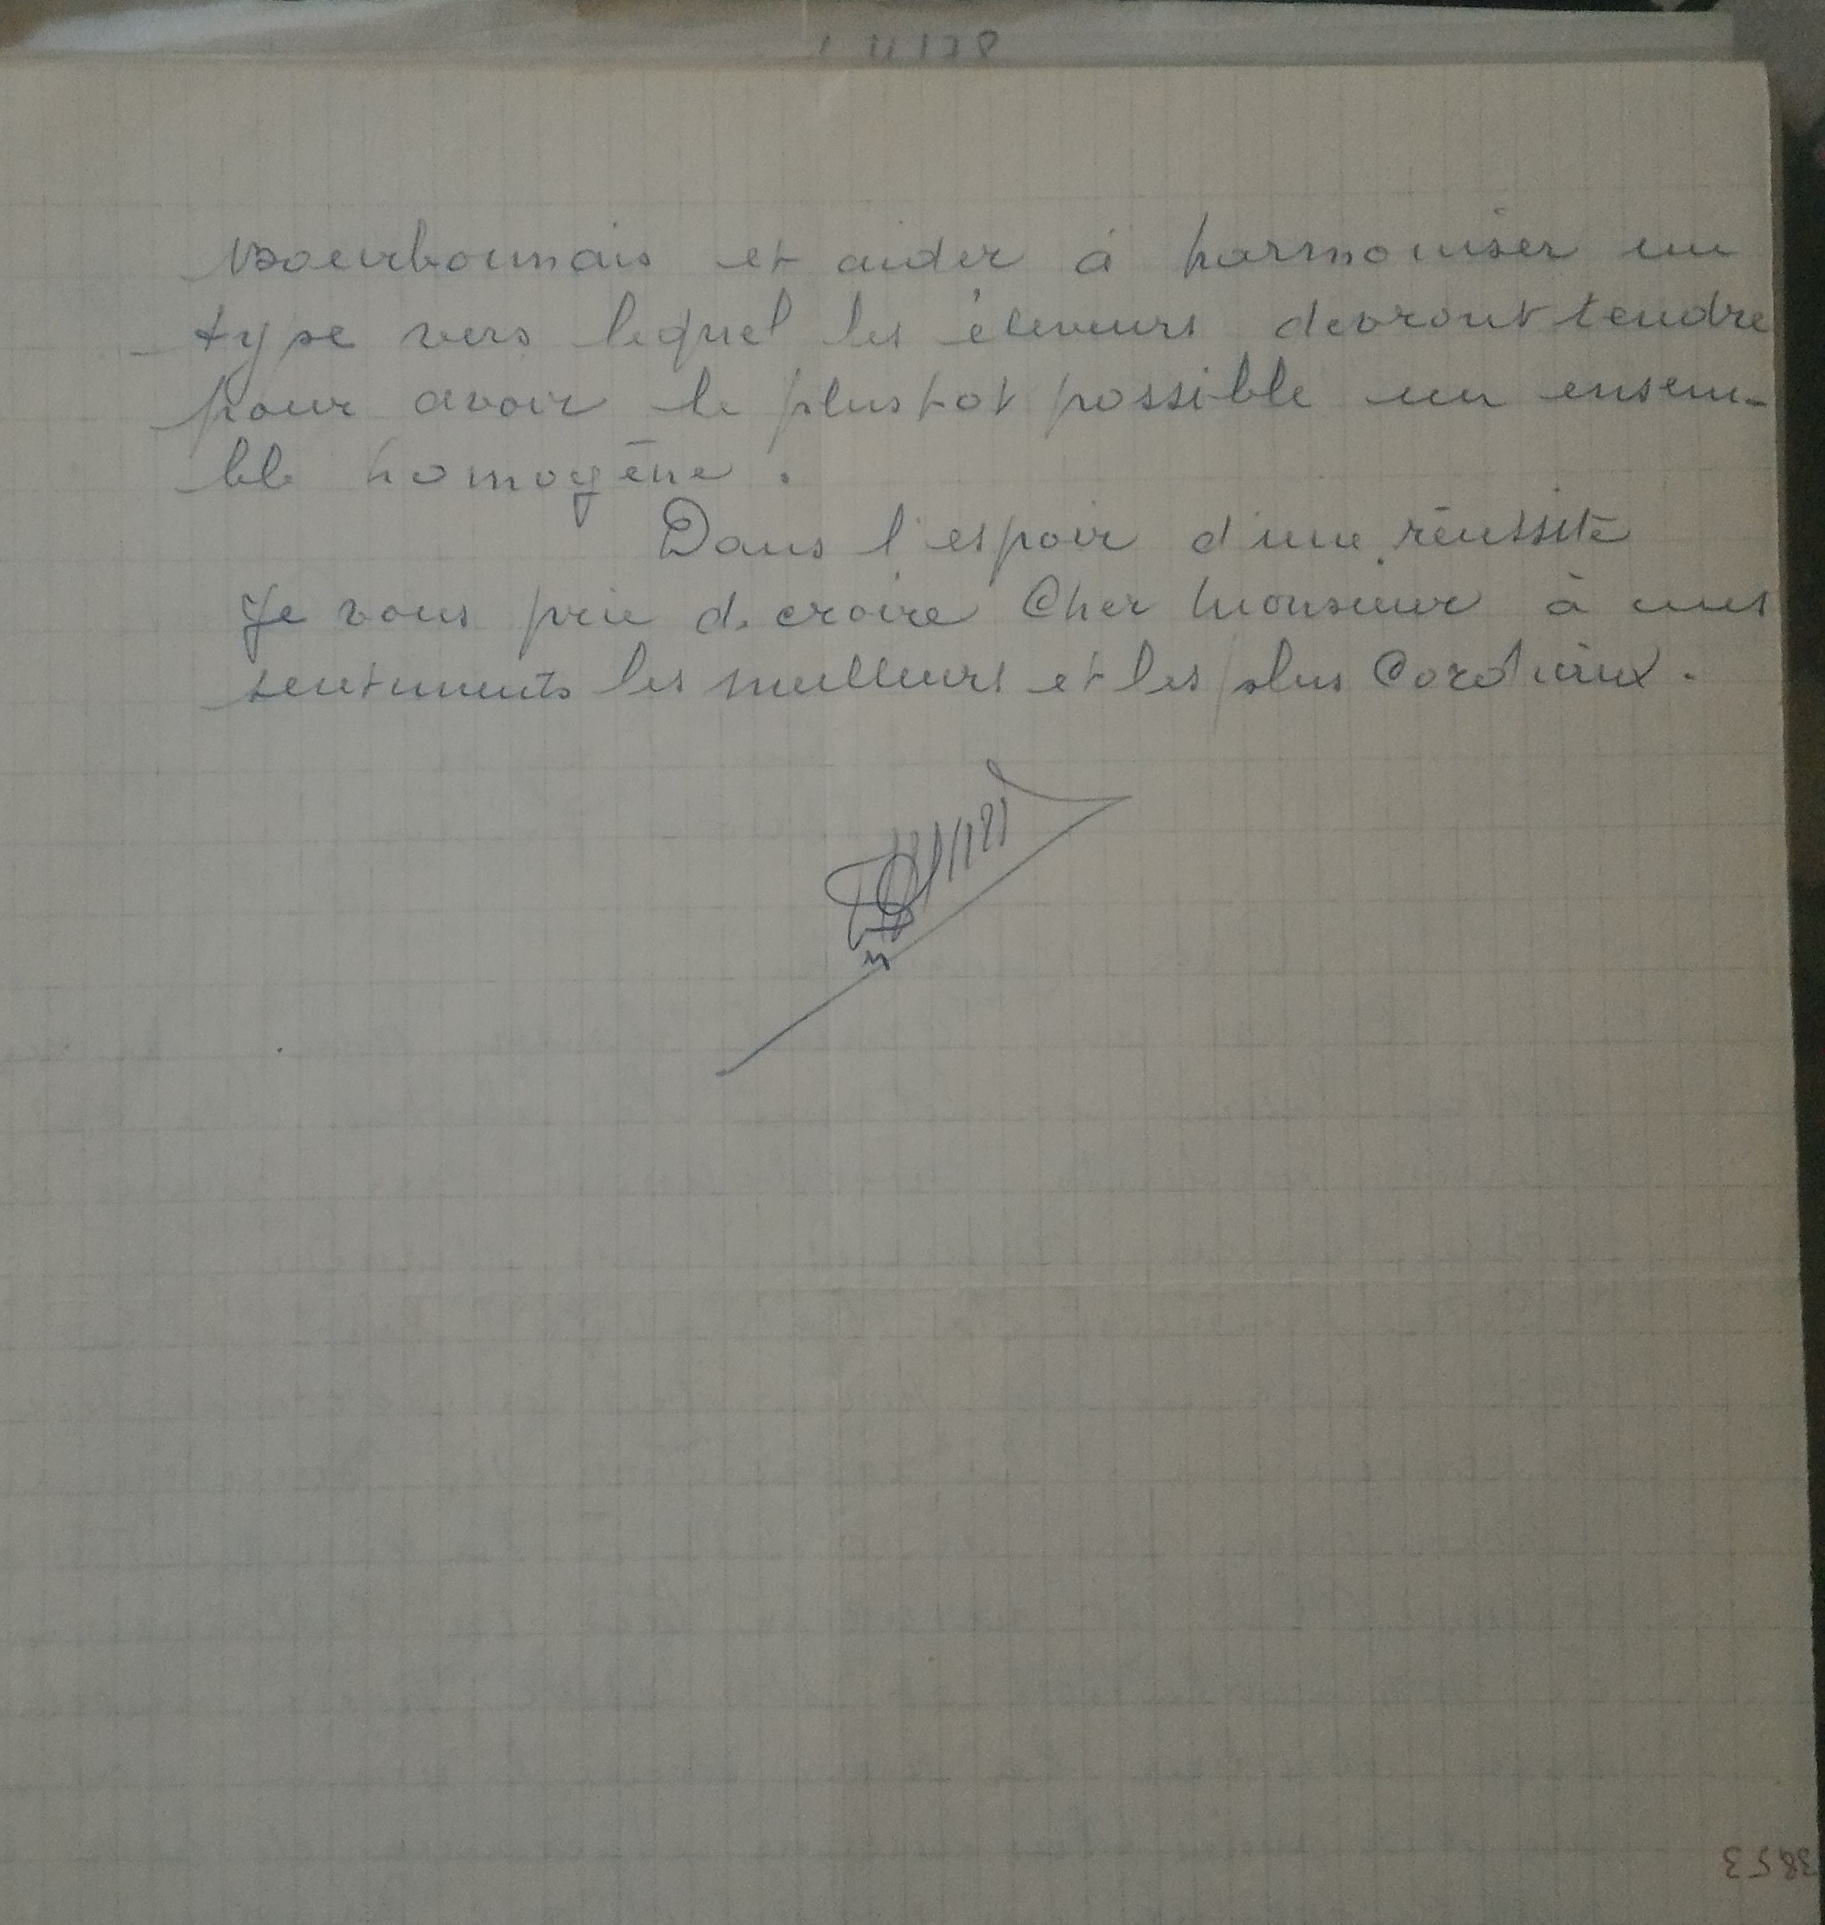 Bourbonnais et aider à harmoniser un
type vers lequel les éleveurs devront tendre
pour avoir le plus tot possible un ensem-
ble homogène.
Dans l'espoir d'une réussite
Je vous prie de croire Cher Monsieur à mes
sentiments les meilleurs et les plus Cordiaux.
3853